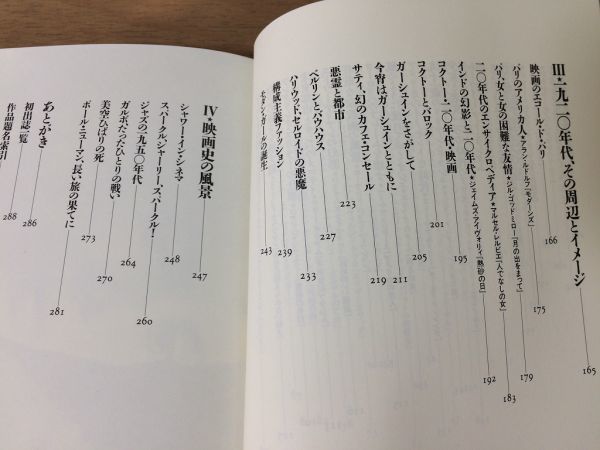 III★一九二〇年代、その周辺とイメージ 165
映画のエコール・ド・パリ 166
パリのアメリカ人★アラン・ルドルフ『モダーンズ』 175
パリ、女と女の困難な友情★ジル・ゴッドミロー『月の出をまって』 179
二〇年代のエンサイクロペディア★マルセル・レルビエ『人でなしの女』 183
インドの幻影と二〇年代★ジェイムズ・アイヴォリィ『熱砂の日』 192
コクトー・二〇年代・映画 195
コクトーとバロック 201
ガーシュインをさがして 205
今宵はガーシュインとともに 211
サティ、幻のカフェ・コンセール 219
悪霊と都市 223
ベルリンとバウハウス 227
ハリウッド、セルロイドの悪魔 233
構成主義ファッション 239
モダン・ガールの誕生 243
IV★映画史の風景 247
シャワー・イン・シネマ 248
スパークル、ジャーリー、スパークル! 260
ジャズの一九五〇年代 264
ガルボ、たったひとりの戦い 270
美空ひばりの死 273
ポール・ニューマン、長い旅の果てに 281
あとがき 286
初出誌一覧 288
作品題名索引